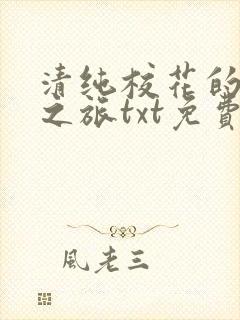 清纯校花的
之旅txt免費
風老三